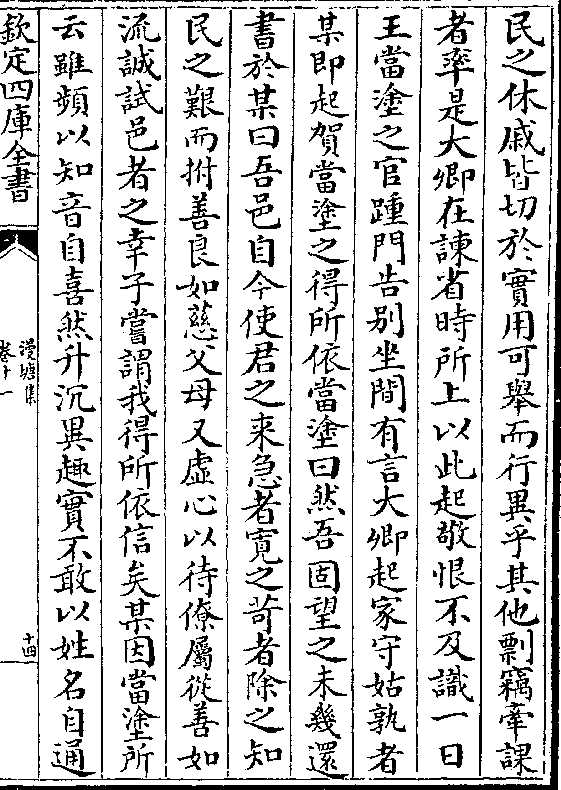 民之休戚皆切於實用可舉而行異乎其他剽竊牽課
者率是大卿在諫省時所上以此起敬恨不及識一日
王當塗之官踵門告别坐間有言大卿起家守姑孰者
某即起賀當塗之得所依當塗曰然吾固望之未幾還
書於某曰吾邑自今使君之来急者寛之苛者除之知
民之艱而拊善良如慈父母又虚心以待僚屬從善如
流誠試邑者之幸子嘗謂我得所依信矣某因當塗所
云雖頻以知音自喜然升沉異趣實不敢以姓名自通
欽定四庫全書
漫塘集
卷十一
十四